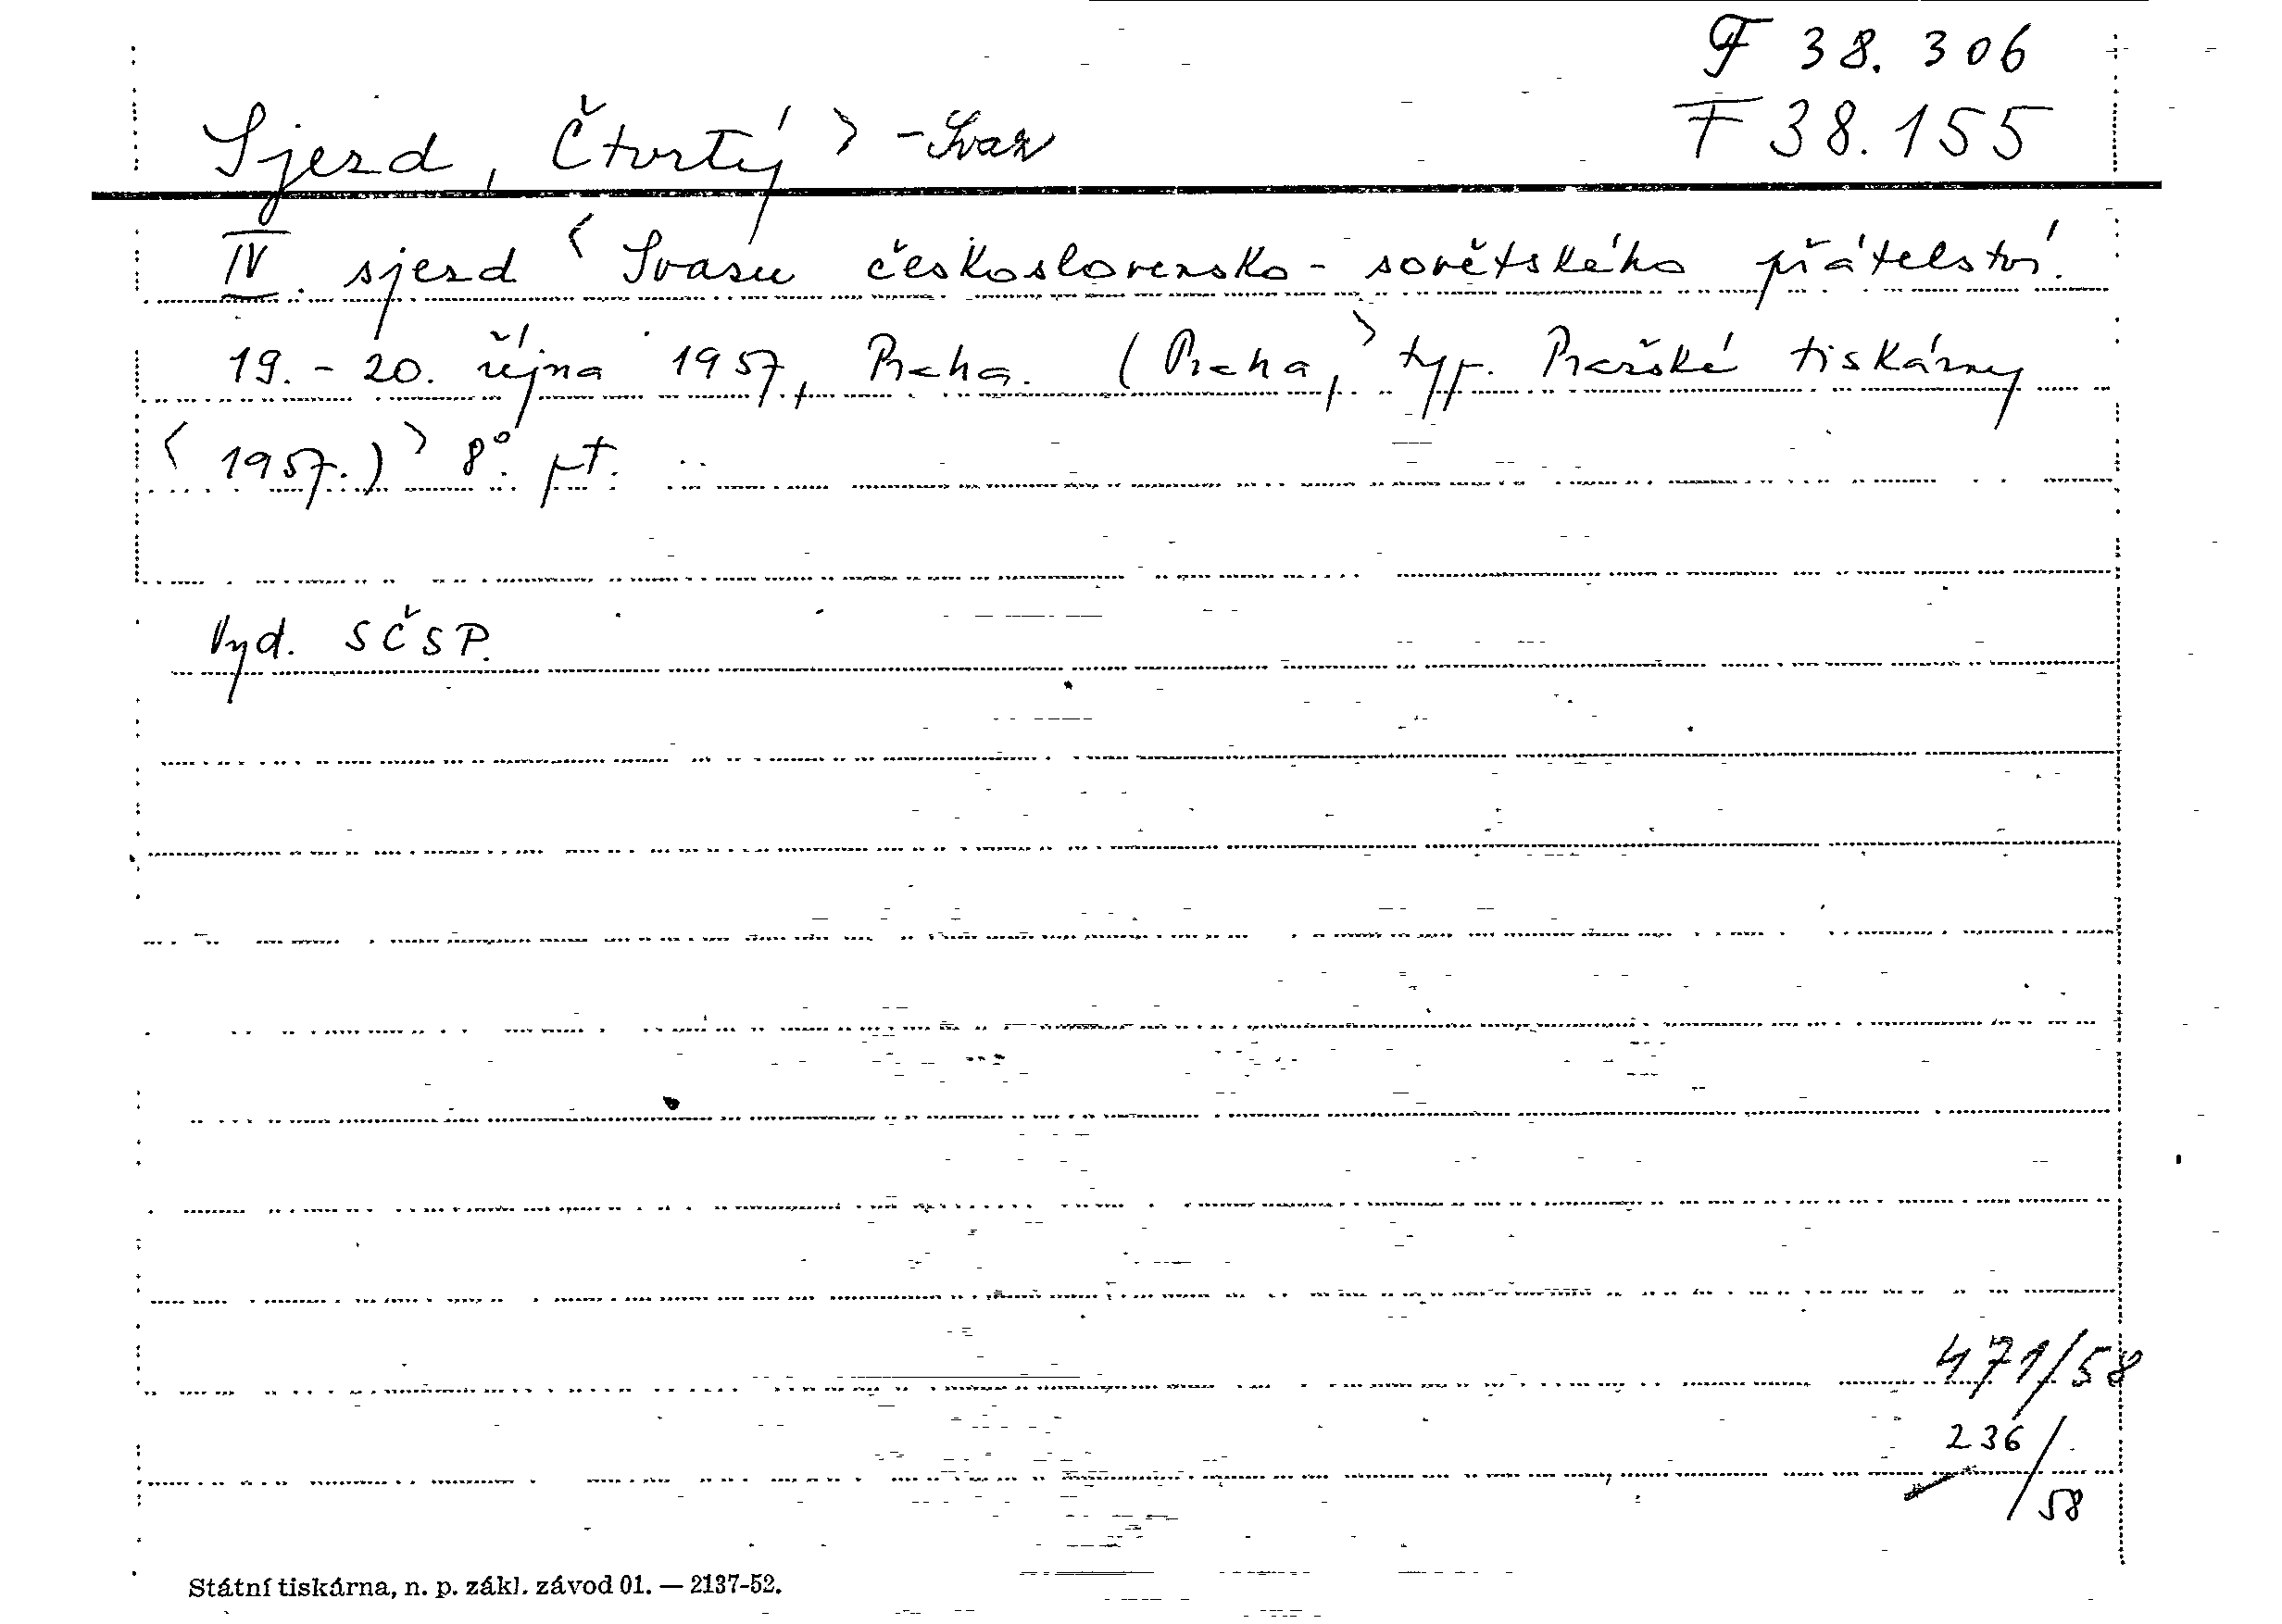 F 38.306
F 38.155
Sjezd, Čtvrtý > - Svaz
IV. sjezd < Svazu československo-sovětského přátelství.
19.-20. října 1957, Praha. (Praha, > typ. Pražské tiskárny
< 1957.) > 8°. pt.
Vyd. SČSP.
471/58
236/58
Státní tiskárna, n. p. zákl. závod 01. — 2137-52.